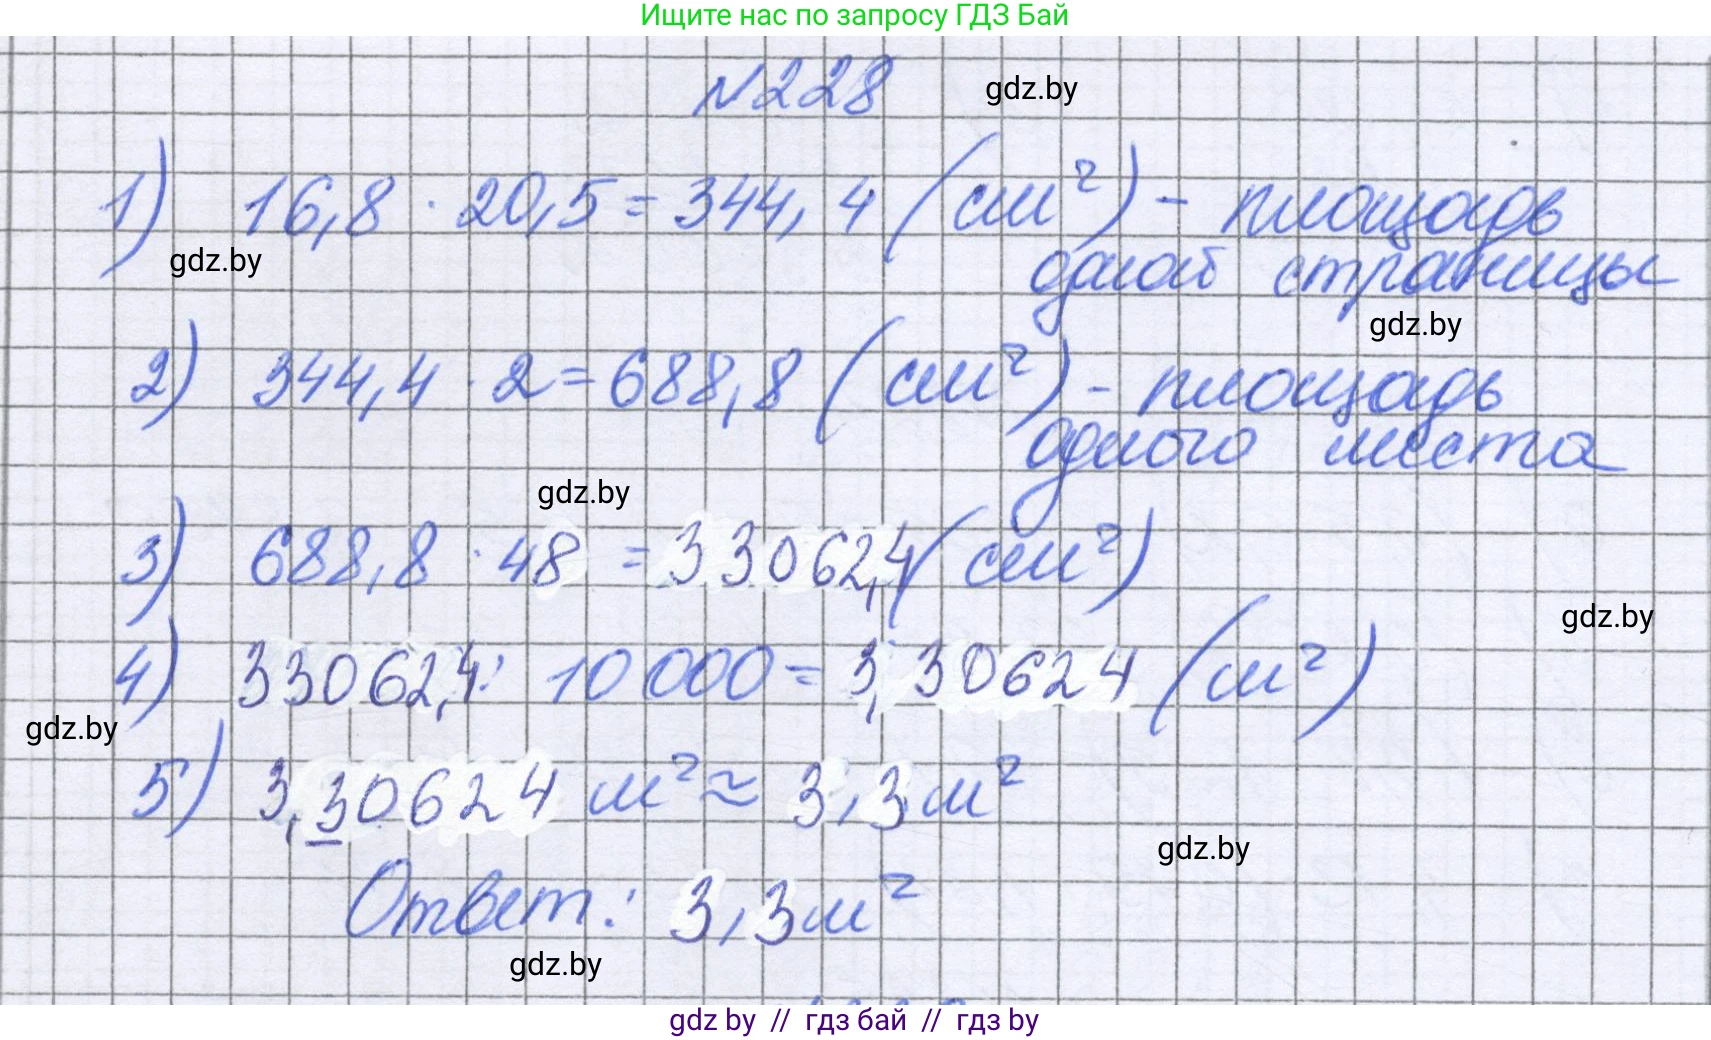 Ищите нас по запросу ГДЗ Бай
№228
gdz.by
1) 16,8 · 20,5 = 344,4 (см²) - площадь
одной страницы
gdz.by
gdz.by
2) 344,4 · 2 = 688,8 (см²) - площадь
одного листа
gdz.by
3) 688,8 · 48 = 33062,4 (см²)
gdz.by
4) 33062,4 : 10 000 = 3,30624 (м²)
gdz.by
5) 3,30624 м² ≈ 3,3 м²
gdz.by
Ответ: 3,3 м²
gdz.by
gdz by // гдз бай // гдз by